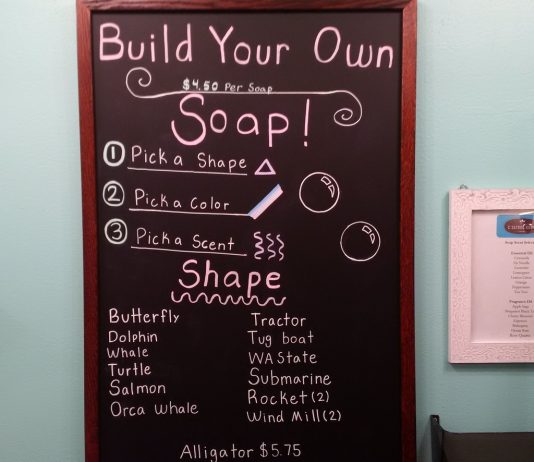 Build Your Own
$4.50 Per Soap
Soap!
1 Pick a Shape
2 Pick a Color
3 Pick a Scent
Shape
Butterfly
Dolphin
Whale
Turtle
Salmon
Orca Whale
Tractor
Tug boat
WA State
Submarine
Rocket (2)
Wind Mill (2)
Alligator $5.75